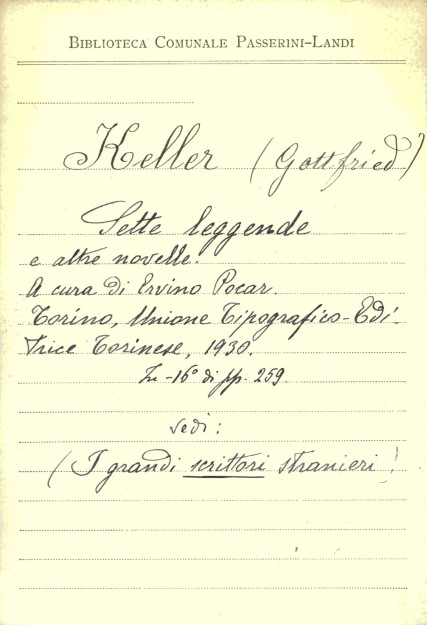 BIBLIOTECA COMUNALE PASSERINI-LANDI
Keller (Gottfried)
Sette leggende
e altre novelle.
A cura di Ervino Pocar.
Torino, Unione Tipografico-Edi-
trice Torinese, 1930.
In -16° di pp. 259.
vedi:
(I grandi scrittori stranieri!